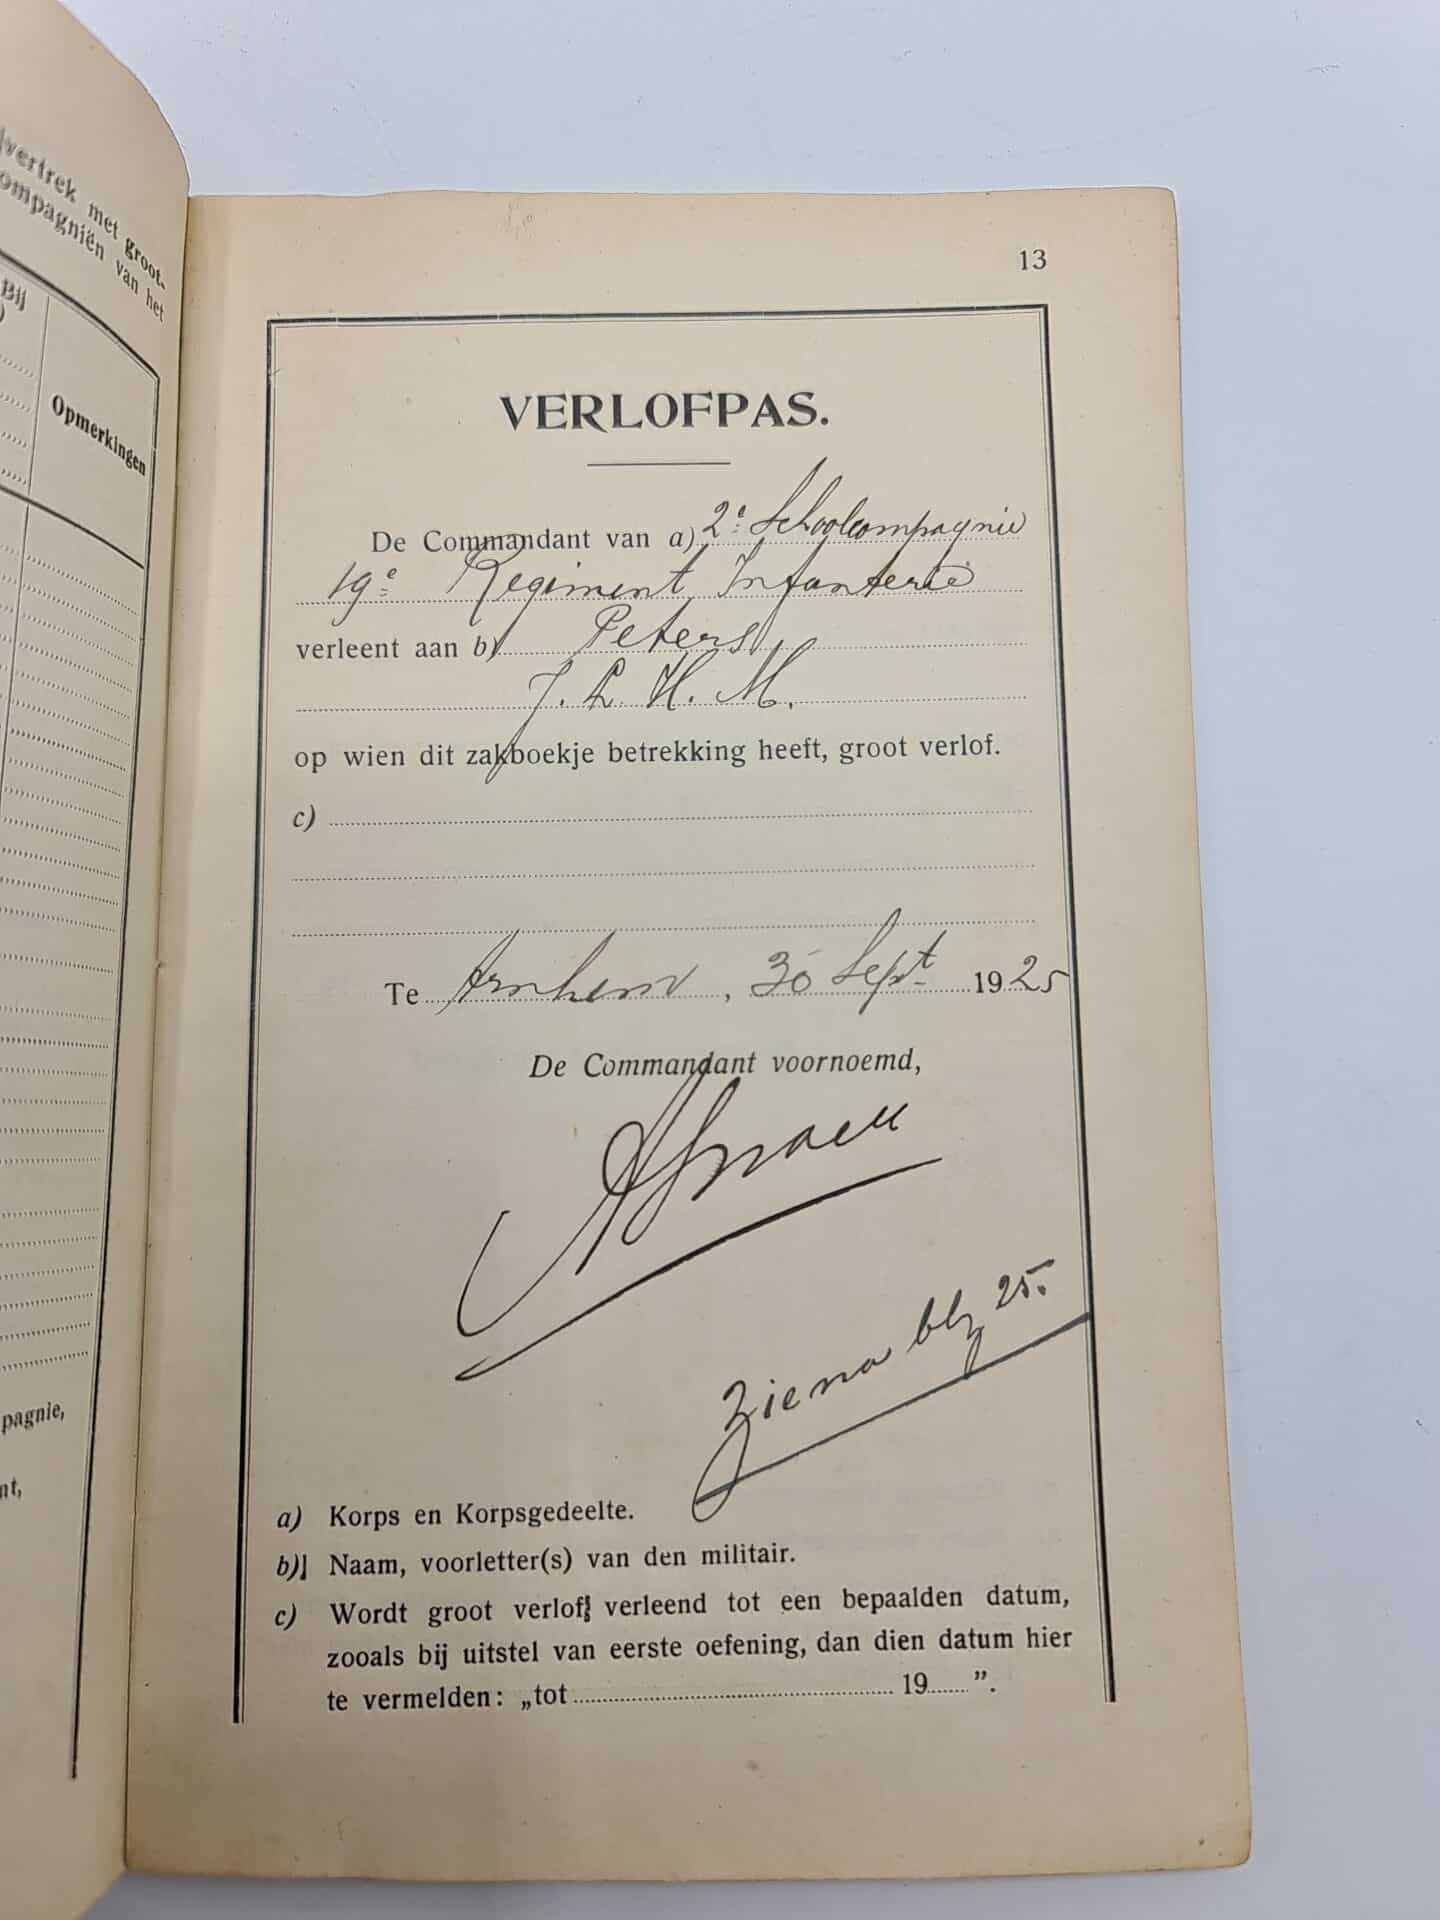 vertrek met groot-
ompagniën van het
Bij
Opmerkingen
pagnie,
nt,
13
VERLOFPAS.
De Commandant van a) 2e Schoolcompagnie
19e Regiment Infanterie
verleent aan b) Peters,
J. L. H. M.
op wien dit zakboekje betrekking heeft, groot verlof.
c)
Te Arnhem, 30 Sept 1925
De Commandant voornoemd,
Zie na blz 25.
a) Korps en Korpsgedeelte.
b) Naam, voorletter(s) van den militair.
c) Wordt groot verlof verleend tot een bepaalden datum,
zooals bij uitstel van eerste oefening, dan dien datum hier
te vermelden: „tot 19 ”.